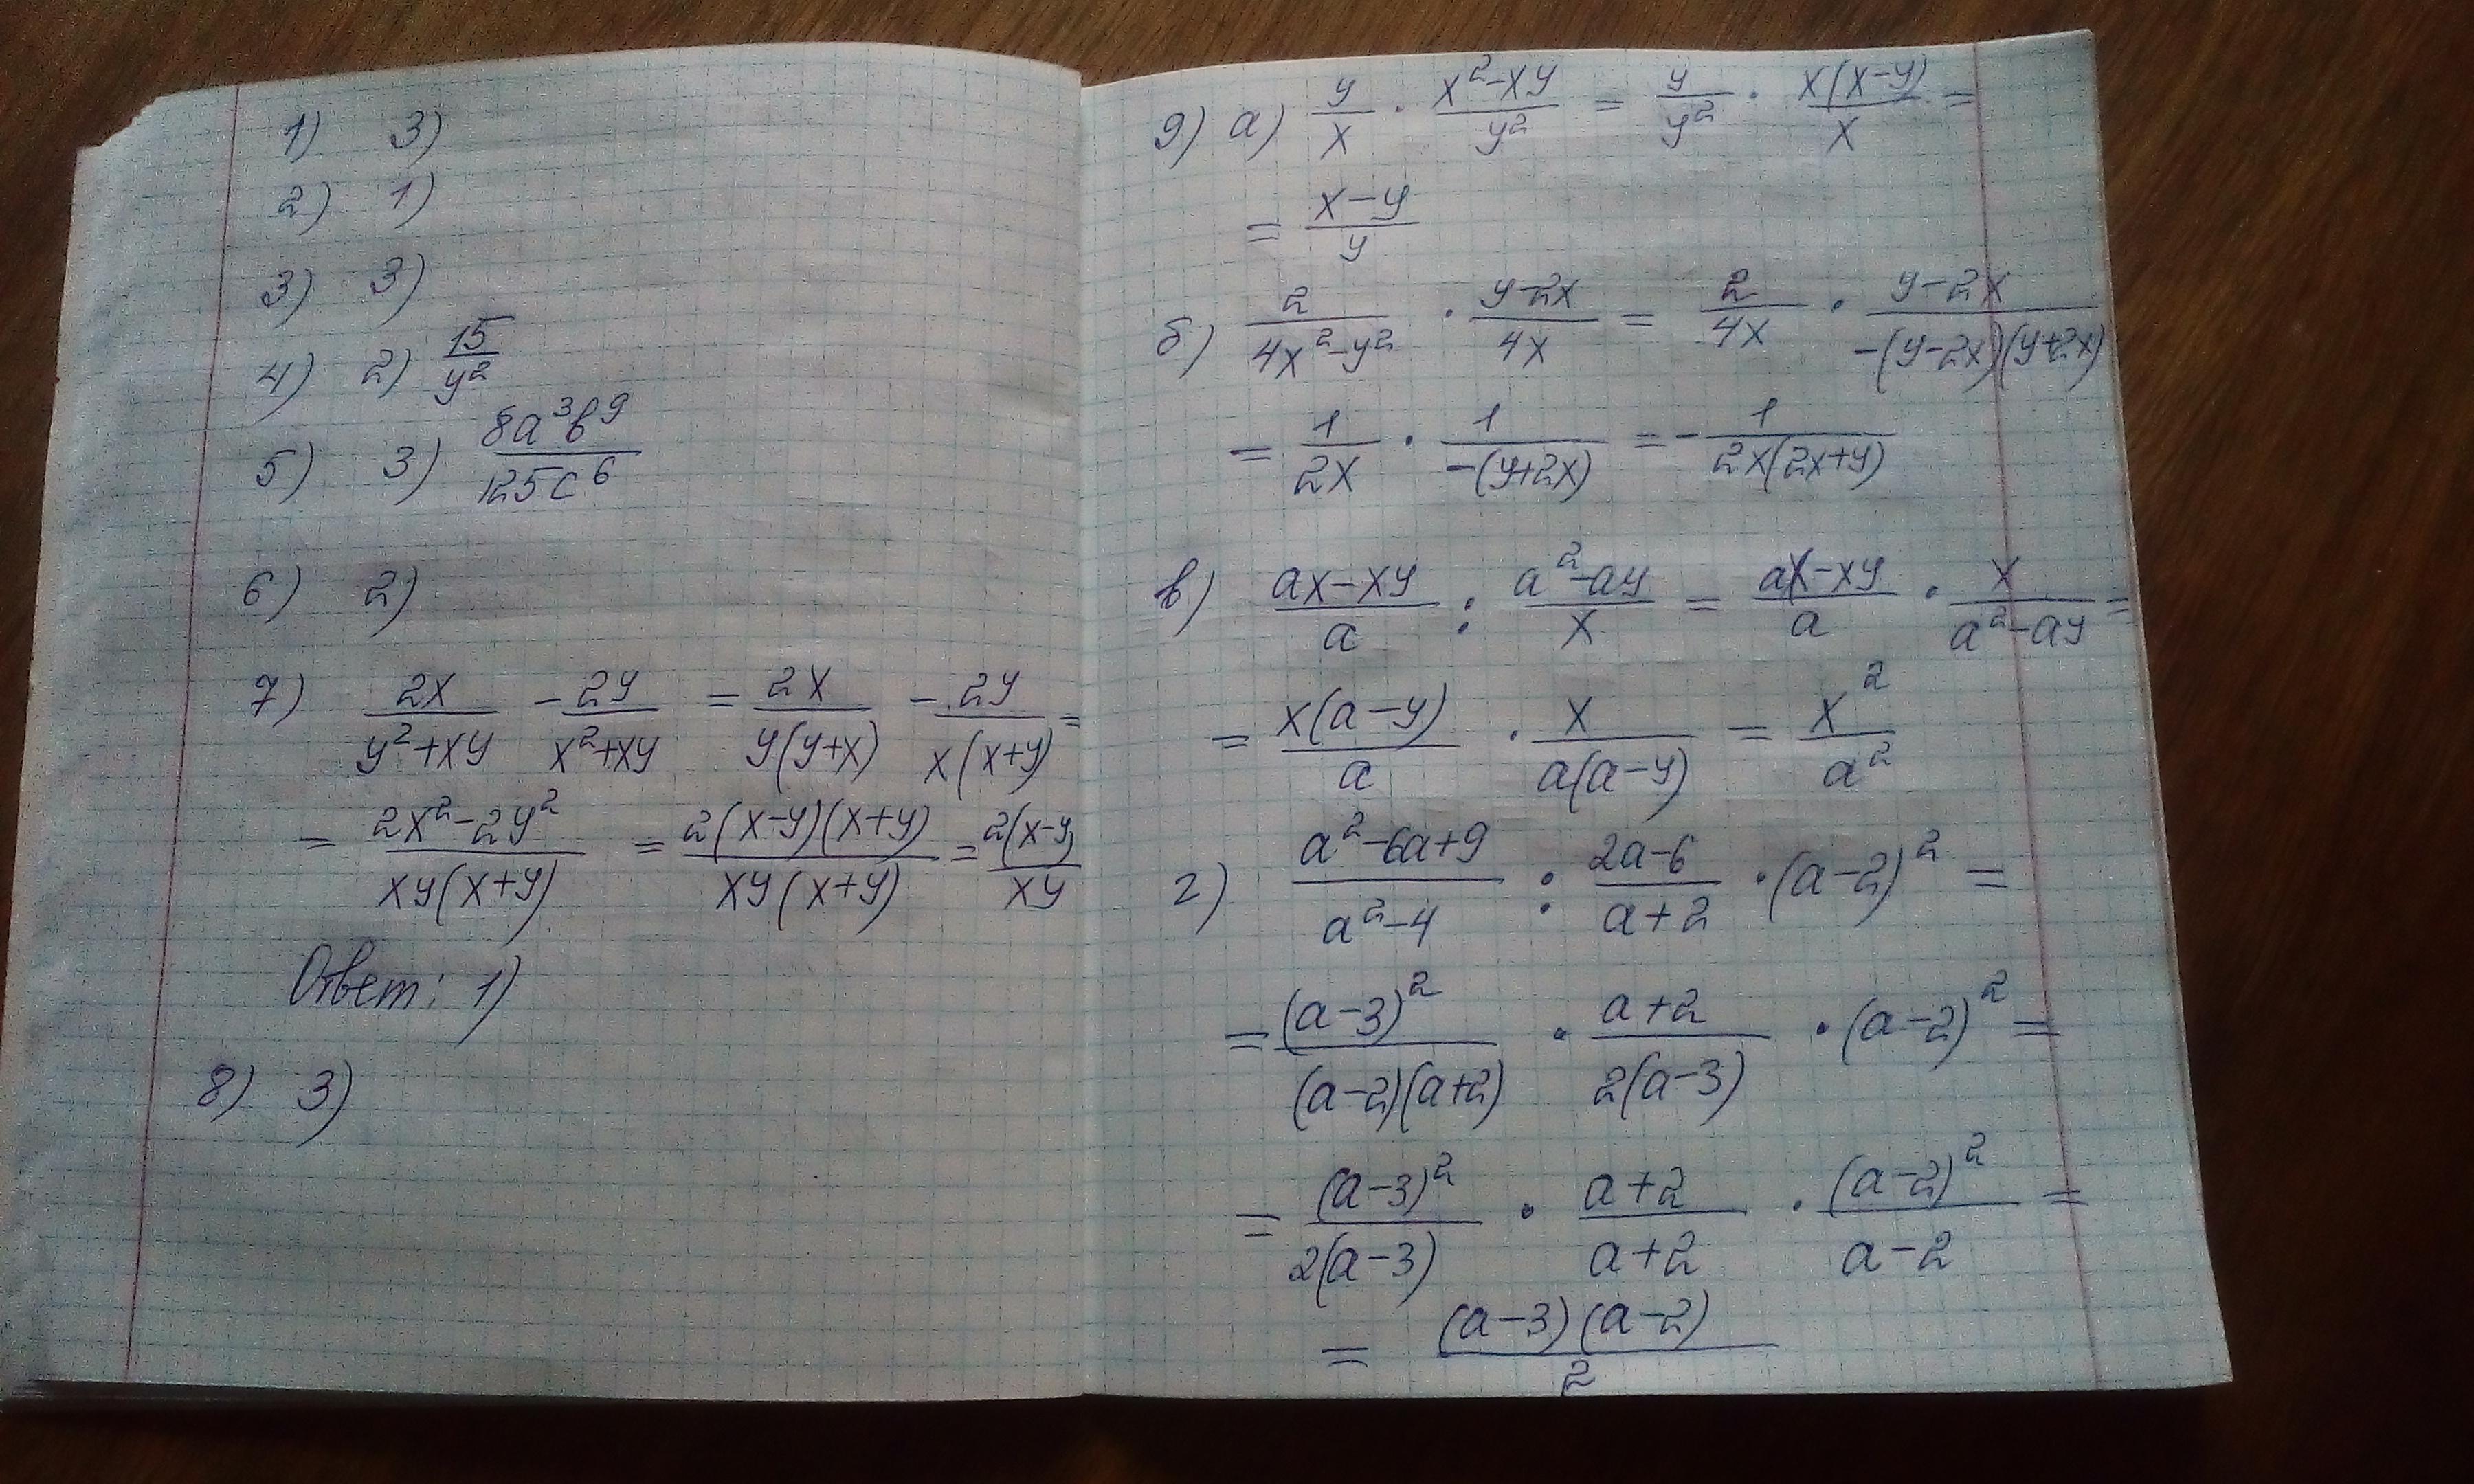 1) 3)
2) 1)
3) 3)
4) 2) 15/y²
5) 3) 8a³b⁹/125c⁶
6) 2)
7) 2x/(y²+xy) - 2y/(x²+xy) = 2x/(y(y+x)) - 2y/(x(x+y)) =
= (2x²-2y²)/(xy(x+y)) = 2(x-y)(x+y)/(xy(x+y)) = 2(x-y)/(xy)
Ответ: 1)
8) 3)
9) а) y/x · (x²-xy)/y² = y/y² · x(x-y)/x =
= (x-y)/y
б) 2/(4x²-y²) · (y-2x)/4x = 2/4x · (y-2x)/(-(y-2x)(y+2x))
= 1/2x · 1/(-(y+2x)) = - 1/(2x(2x+y))
в) (ax-xy)/a : (a²-ay)/x = (ax-xy)/a · x/(a²-ay) =
= x(a-y)/a · x/(a(a-y)) = x²/a²
г) (a²-6a+9)/(a²-4) : (2a-6)/(a+2) · (a-2)² =
= (a-3)²/((a-2)(a+2)) · (a+2)/(2(a-3)) · (a-2)² =
= (a-3)²/(2(a-3)) · (a+2)/(a+2) · (a-2)²/(a-2) =
= (a-3)(a-2)/2